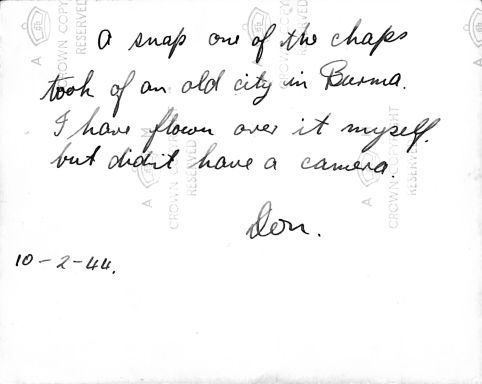 A snap one of the chaps
took of an old city in Burma.
I have flown over it myself.
but didn't have a camera.
Don.
10-2-44.
A
CROWN COPYRIGHT
RESERVED
A
CROWN COPYRIGHT
RESERVED
CROWN COPYRIGHT
RESERVED